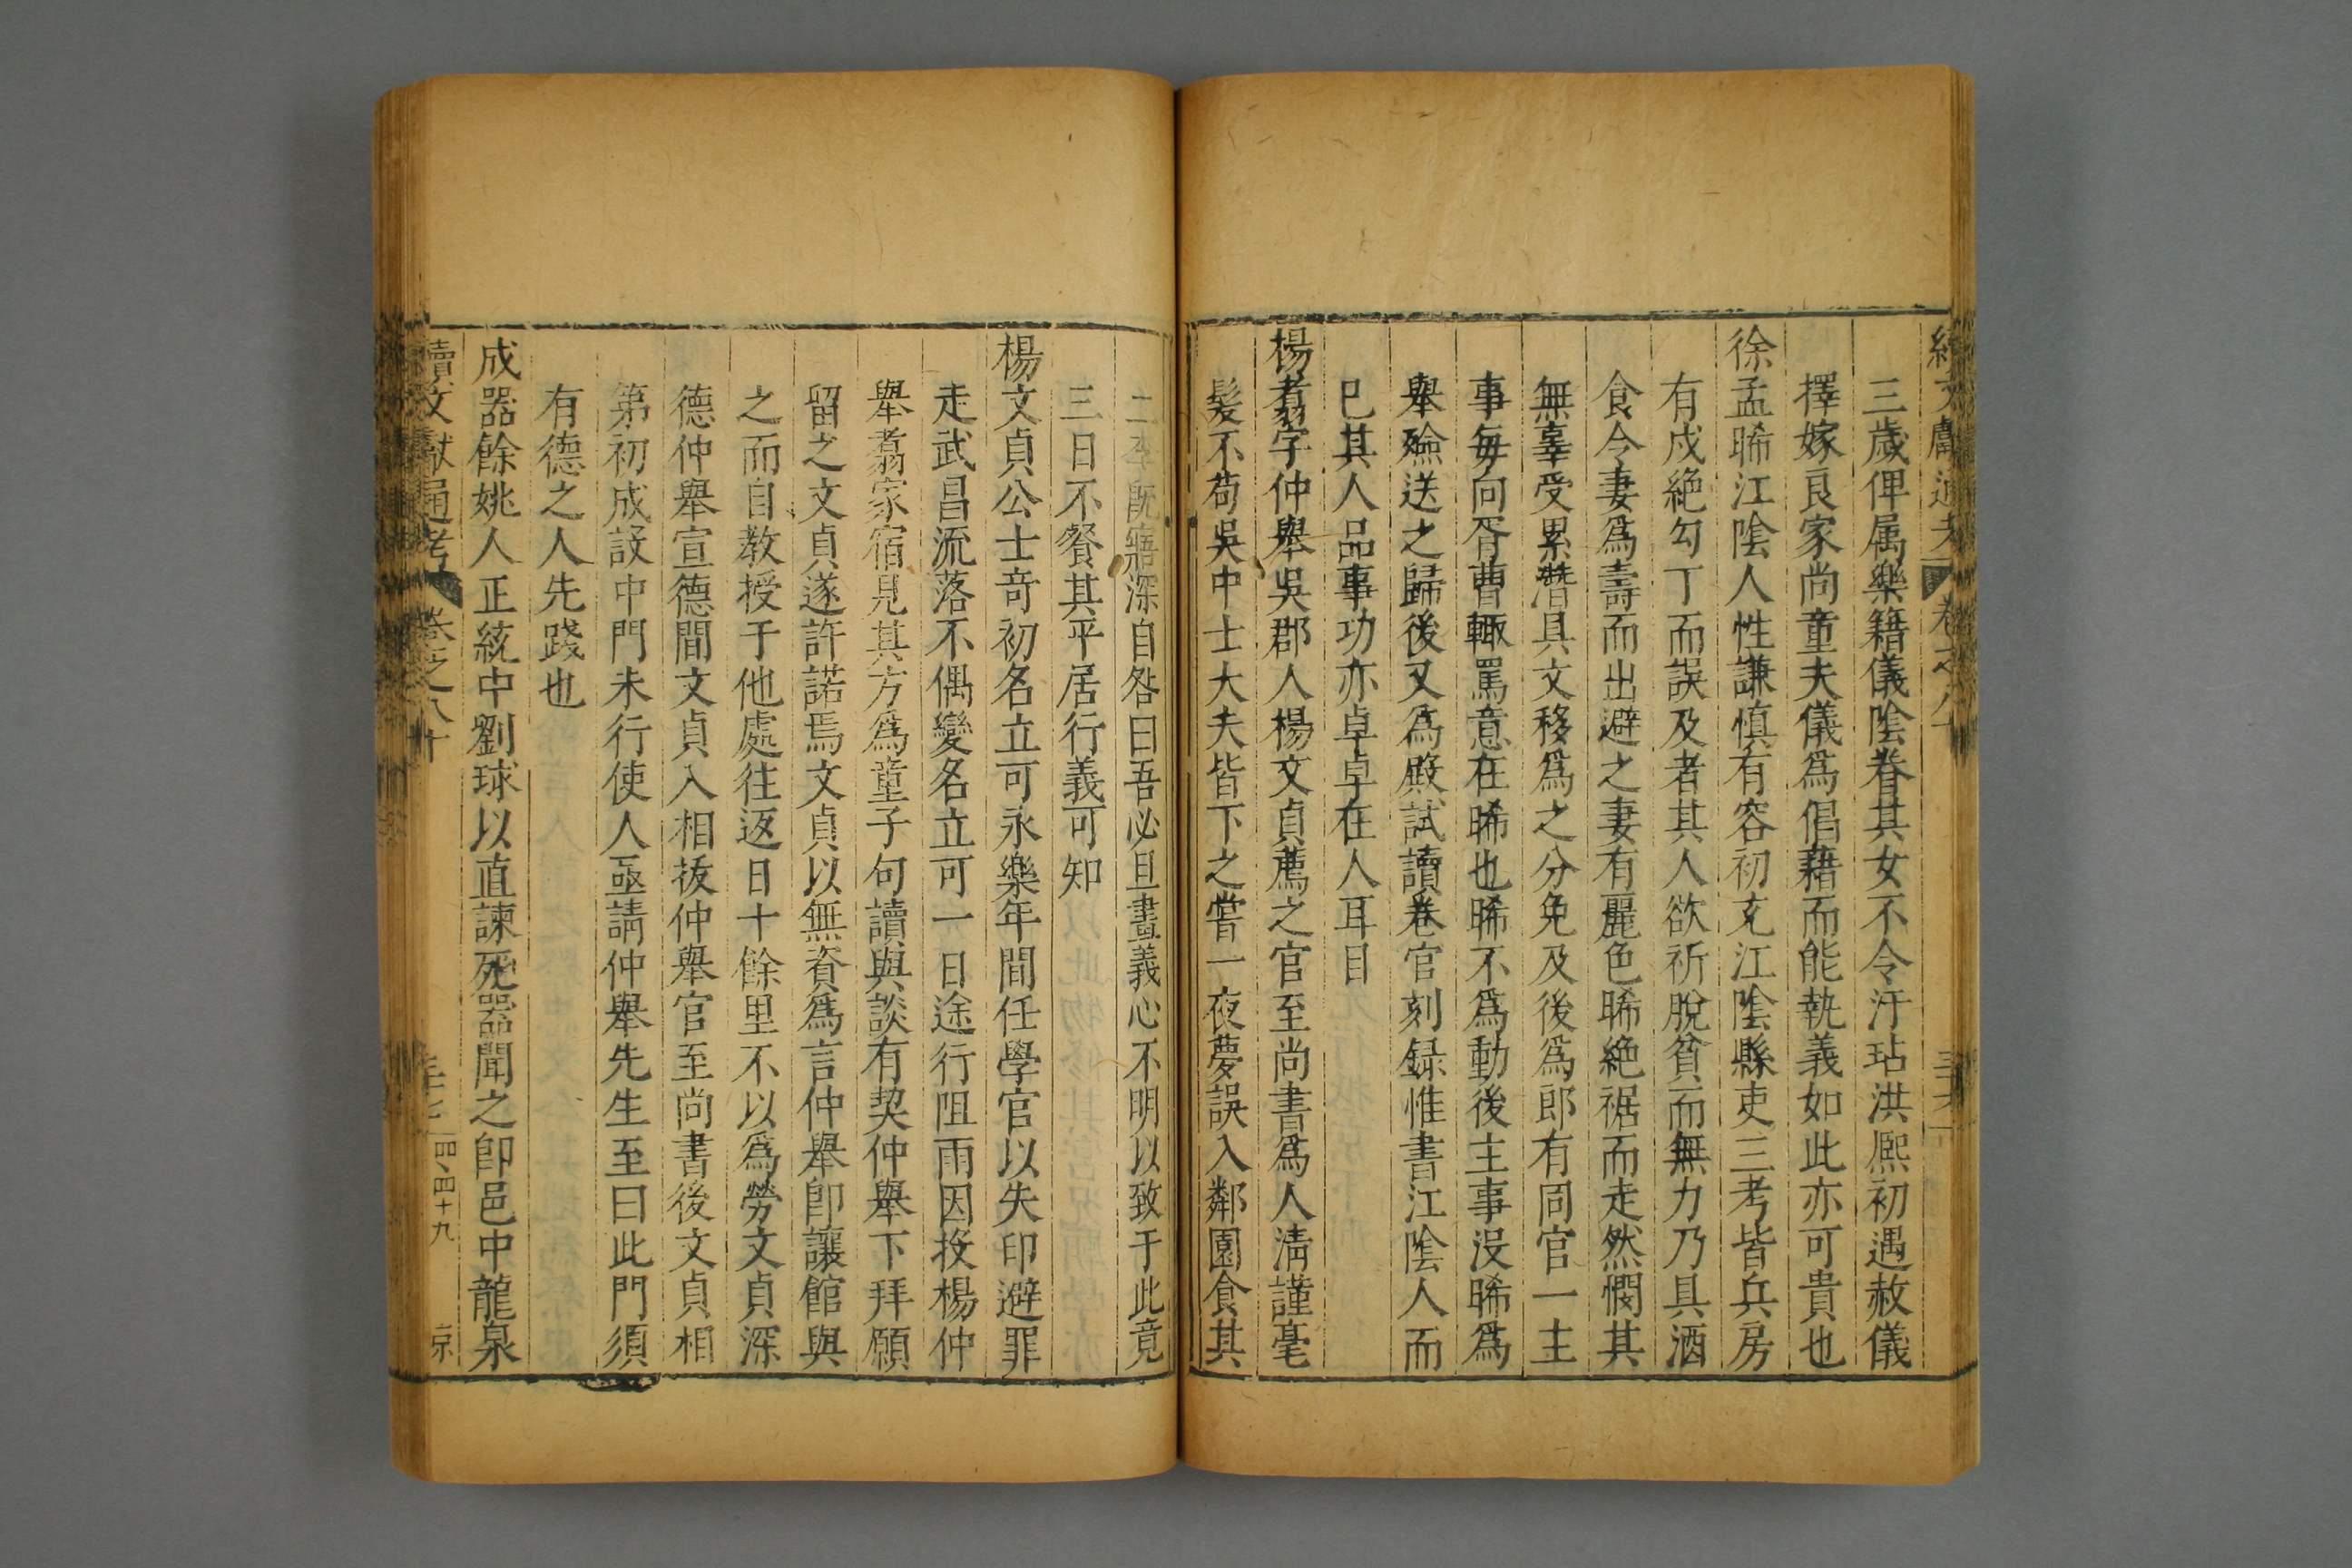 續文獻通考 卷之八十
三歲俾属樂籍儀陰眷其女不令汙玷洪熈初遇赦儀
擇嫁良家尚童夫儀爲倡藉而能執義如此亦可貴也
徐孟晞江陰人性謙慎有容初充江陰縣吏三考皆兵房
有戍絶勾丁而誤及者其人欲祈脫貧而無力乃具酒
食令妻爲壽而出避之妻有麗色晞絶裾而走然憫其
無辜受累潛具文移爲之分免及後爲郎有同官一主
事每向胥曹輙罵意在晞也晞不爲動後主事没晞爲
舉殮送之歸後又爲殿試讀卷官刻録惟書江陰人而
巳其人品事功亦卓卓在人耳目
楊翥字仲舉吳郡人楊文貞薦之官至尚書爲人淸謹毫
髮不苟吳中士大夫皆下之嘗一夜夢誤入鄰園食其
二李既寤深自咎曰吾必旦晝義心不明以致于此竟
三日不餐其平居行義可知
楊文貞公士竒初名立可永樂年間任學官以失印避罪
走武昌流落不偶變名立可一日途行阻雨因投楊仲
舉翥家宿見其方爲童子句讀與談有契仲舉下拜願
留之文貞遂許諾焉文貞以無資爲言仲舉卽讓館與
之而自教授于他處往返日十餘里不以爲勞文貞深
德仲舉宣德間文貞入相拔仲舉官至尚書後文貞相
第初成設中門未行使人亟請仲舉先生至曰此門須
有德之人先踐也
成器餘姚人正統中劉球以直諫死器聞之卽邑中龍泉
續文獻通考 卷之八十 三七 四、四十九 京